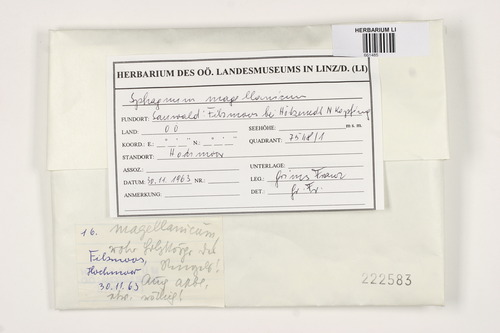 HERBARIUM LI
HERBARIUM DES OÖ. LANDESMUSEUMS IN LINZ/D. (LI)
Sphagnum magellanicum
FUNDORT: Sauwald: Filzmoos bei Hötzenedl N Kopfing
LAND: OÖ SEEHÖHE: m s. m.
KOORD.: E.: ° ' " N.: ° ' " QUADRANT: 7548/1
STANDORT: Hochmoor
ASSOZ.: UNTERLAGE:
DATUM: 30.11.1963 NR.: LEG.: Grims Franz
ANMERKUNG: DET.: Gr. Fr.
16. magellanicum,
Filzmoos,
Hochmoor
30.11.63
222583